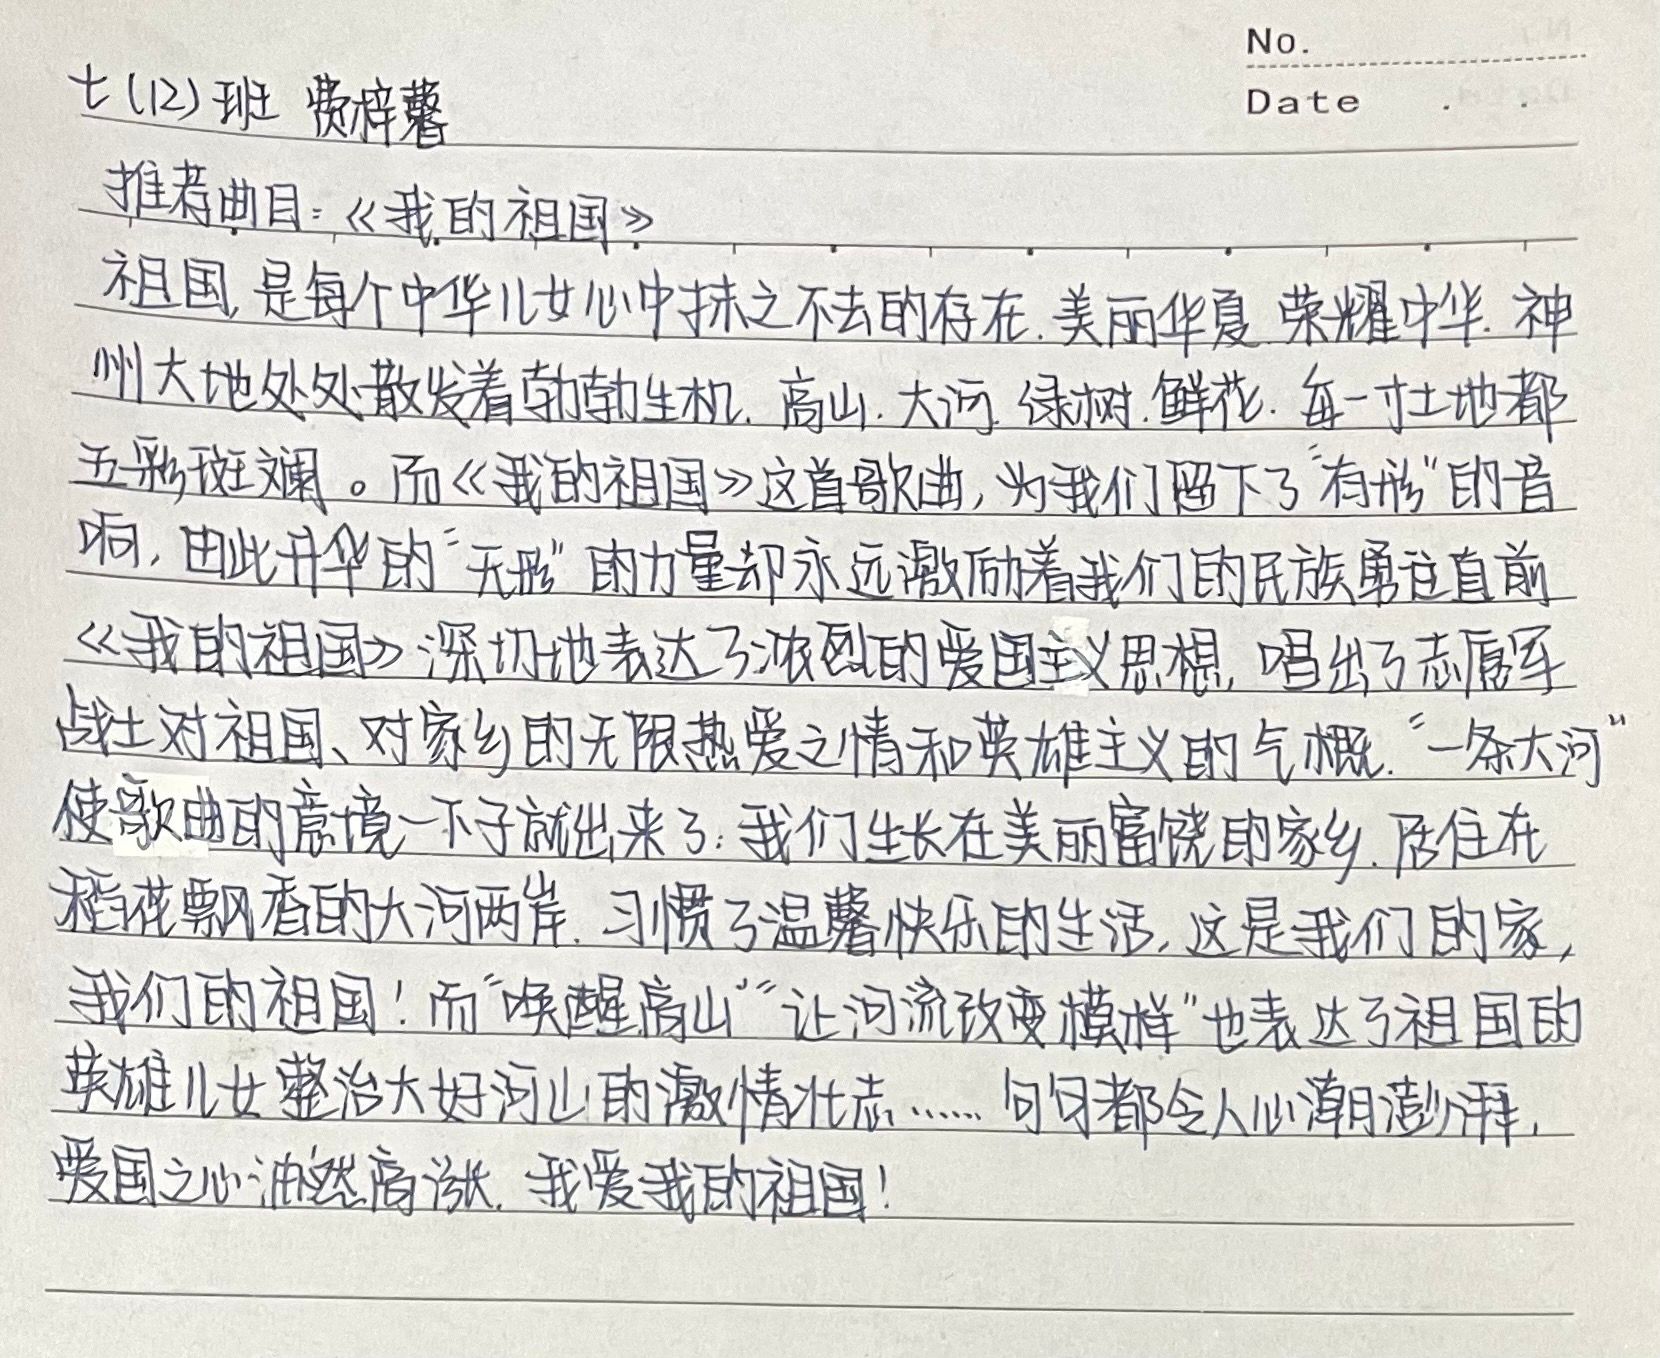 No.
Date . .
七(12)班 费梓馨
推荐曲目：《我的祖国》
祖国,是每个中华儿女心中抹之不去的存在.美丽华夏.荣耀中华.神
州大地处处散发着勃勃生机.高山.大河.绿树.鲜花.每一寸土地都
五彩斑斓。而《我的祖国》这首歌曲,为我们留下了“有形”的音
响,由此升华的“无形”的力量却永远激励着我们的民族勇往直前
《我的祖国》深切地表达了浓烈的爱国主义思想,唱出了志愿军
战士对祖国、对家乡的无限热爱之情和英雄主义的气概.“一条大河”
使歌曲的意境一下子就出来了:我们生长在美丽富饶的家乡.居住在
稻花飘香的大河两岸.习惯了温馨快乐的生活,这是我们的家,
我们的祖国!而“唤醒高山”“让河流改变模样”也表达了祖国的
英雄儿女整治大好河山的激情壮志……句句都令人心潮澎湃,
爱国之心油然高涨.我爱我的祖国!